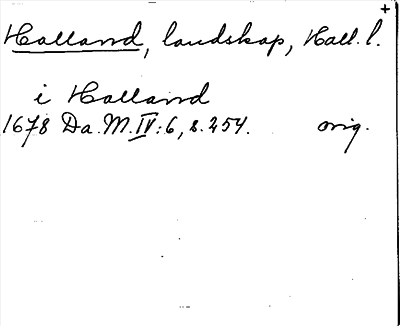 +
Halland, landskap, Hall. l.
i Halland
1678 Da. M. IV:6, s. 254. orig.